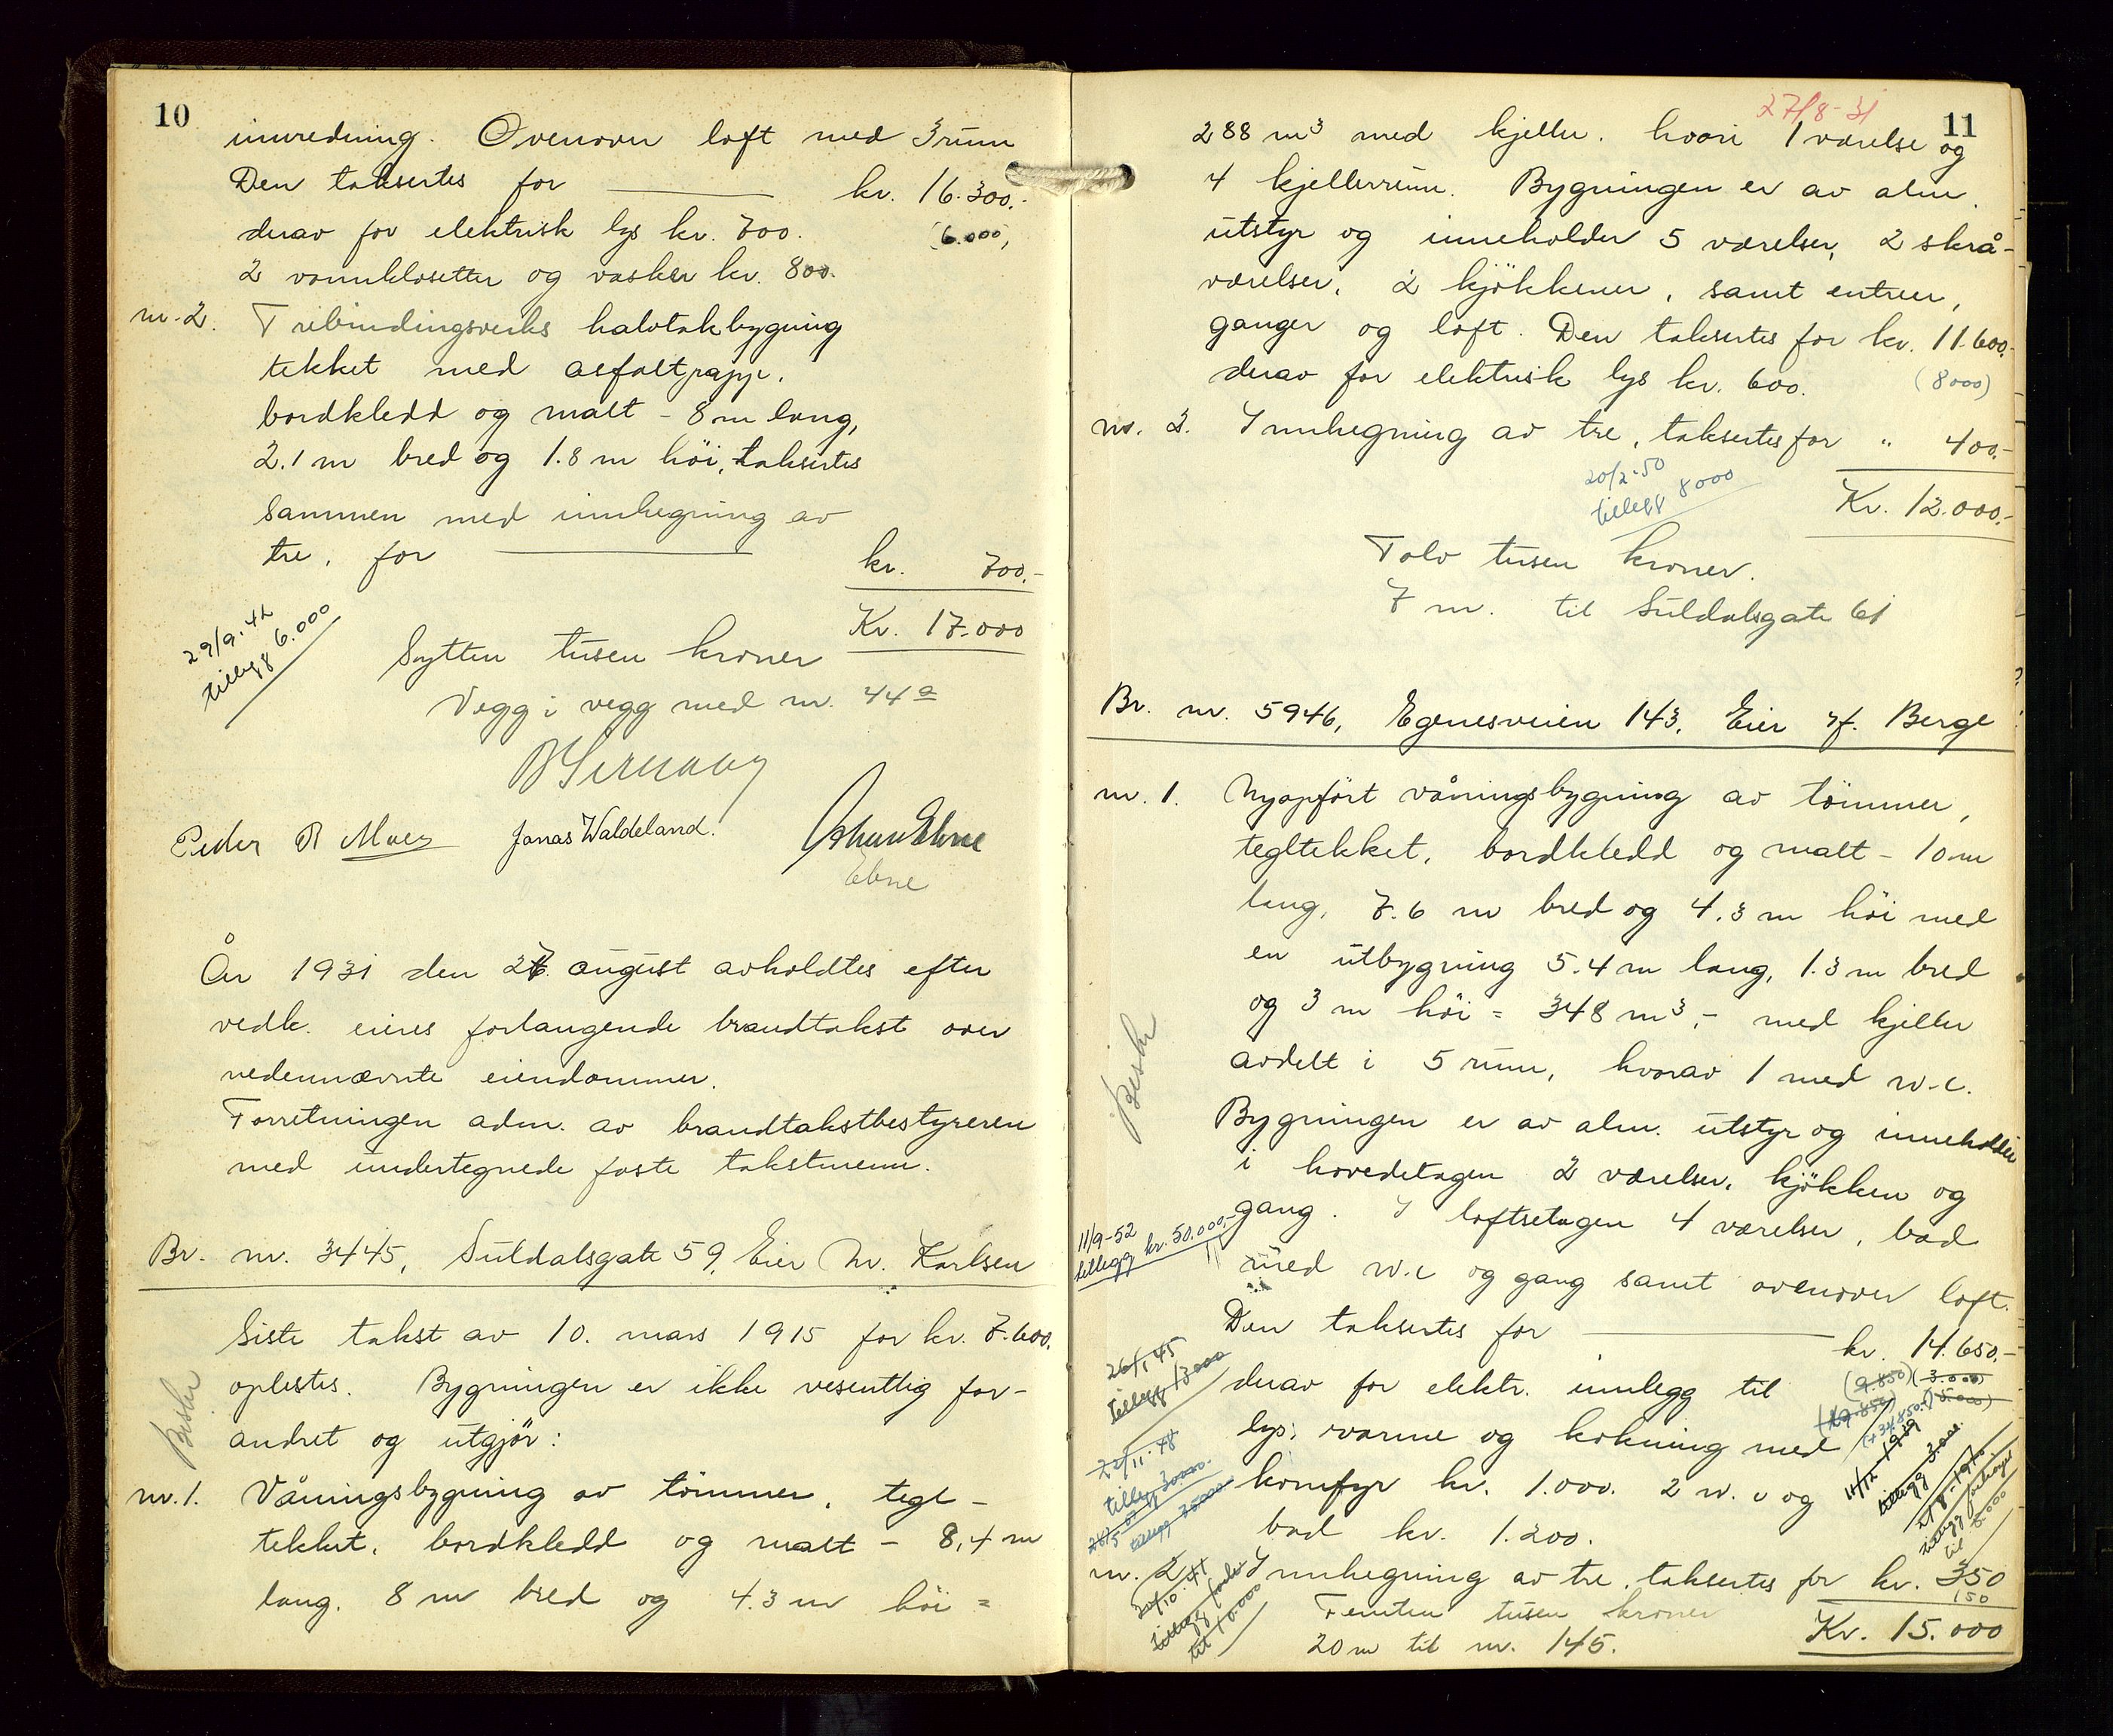 10
innredning. Ovenover loft med 3 rum
Den taksertes for kr. 16.300.-
derav for elektrisk lys kr. 700. (6.000)
2 vannklosetter og vasker kr. 800.
nr. 2. Trebindingsverks halvtakbygning
tekket med asfaltpapp,
bordkledd og malt - 8 m lang,
2.1 m bred og 1.8 m høi, taksertes
sammen med innhegning av
tre, for kr. 700.-
Kr. 17.000
29/9.42
tillegg 6.000
Sytten tusen kroner
Vegg i vegg med nr. 44a
Peder R Jonas Waldeland.
Ebne
År 1931 den 27. august avholdtes efter
vedk. eieres forlangende brandtakst over
nedennævnte eiendommer.
Forretningen adm. av brandtakstbestyreren
med undertegnede faste takstmenn.
Br. nr. 3445, Suldalsgate 59, Eier M. Karlsen
Siste takst av 10. mars 1915 for kr. 7.600.
oplestes. Bygningen er ikke vesentlig for-
andret og utgjør:
Beskr
nr. 1. Våningsbygning av tømmer, tegl-
tekket, bordkledd og malt - 8,4 m
lang. 8 m bred og 4.3 m høi =
27/8-31
11
288 m3 med kjeller. hvori 1 værelse og
4 kjellerrum. Bygningen er av alm.
utstyr og inneholder 5 værelser, 2 skrå-
værelser, 2 kjøkkener, samt entreer,
ganger og loft. Den taksertes for kr. 11.600.-
derav for elektrisk lys kr. 600. (8000)
nr. 2. Innhegning av tre, taksertes for " 400.-
20/2-50
tillegg 8000
Kr. 12.000.-
Tolv tusen kroner.
7 m. til Suldalsgate 61
Br. nr. 5946, Egenesveien 143, Eier Berge
nr. 1. Nyopført våningsbygning av tømmer,
tegltekket, bordkledd og malt - 10 m
lang, 7.6 m bred og 4.3 m høi med
en utbygning 5.4 m lang, 1.3 m bred
og 3 m høi = 348 m3,- med kjeller
avdelt i 5 rum, hvorav 1 med w.c.
Beskr
Bygningen er av alm. utstyr og inneholder
i hovedetagen 2 værelser, kjøkken og
gang. I loftsetagen 4 værelser, bad
11/9-52
tillegg kr. 50.000,-
med w.c og gang samt ovenover loft.
Den taksertes for kr. 14.650.-
26/1.45
tillegg 13000
derav for elektr. innlegg til (9.850) (3.000)
lys, varme og kokning med
22/11.48
tillegg 30000.
komfyr kr. 1.000. 2 w.c og
11/12 1939
tillegg 3.000.
bad kr. 1.200.
nr. 2 Innhegning av tre, taksertes for kr. 350
150
Femten tusen kroner
Kr. 15.000
20 m til nr. 145.